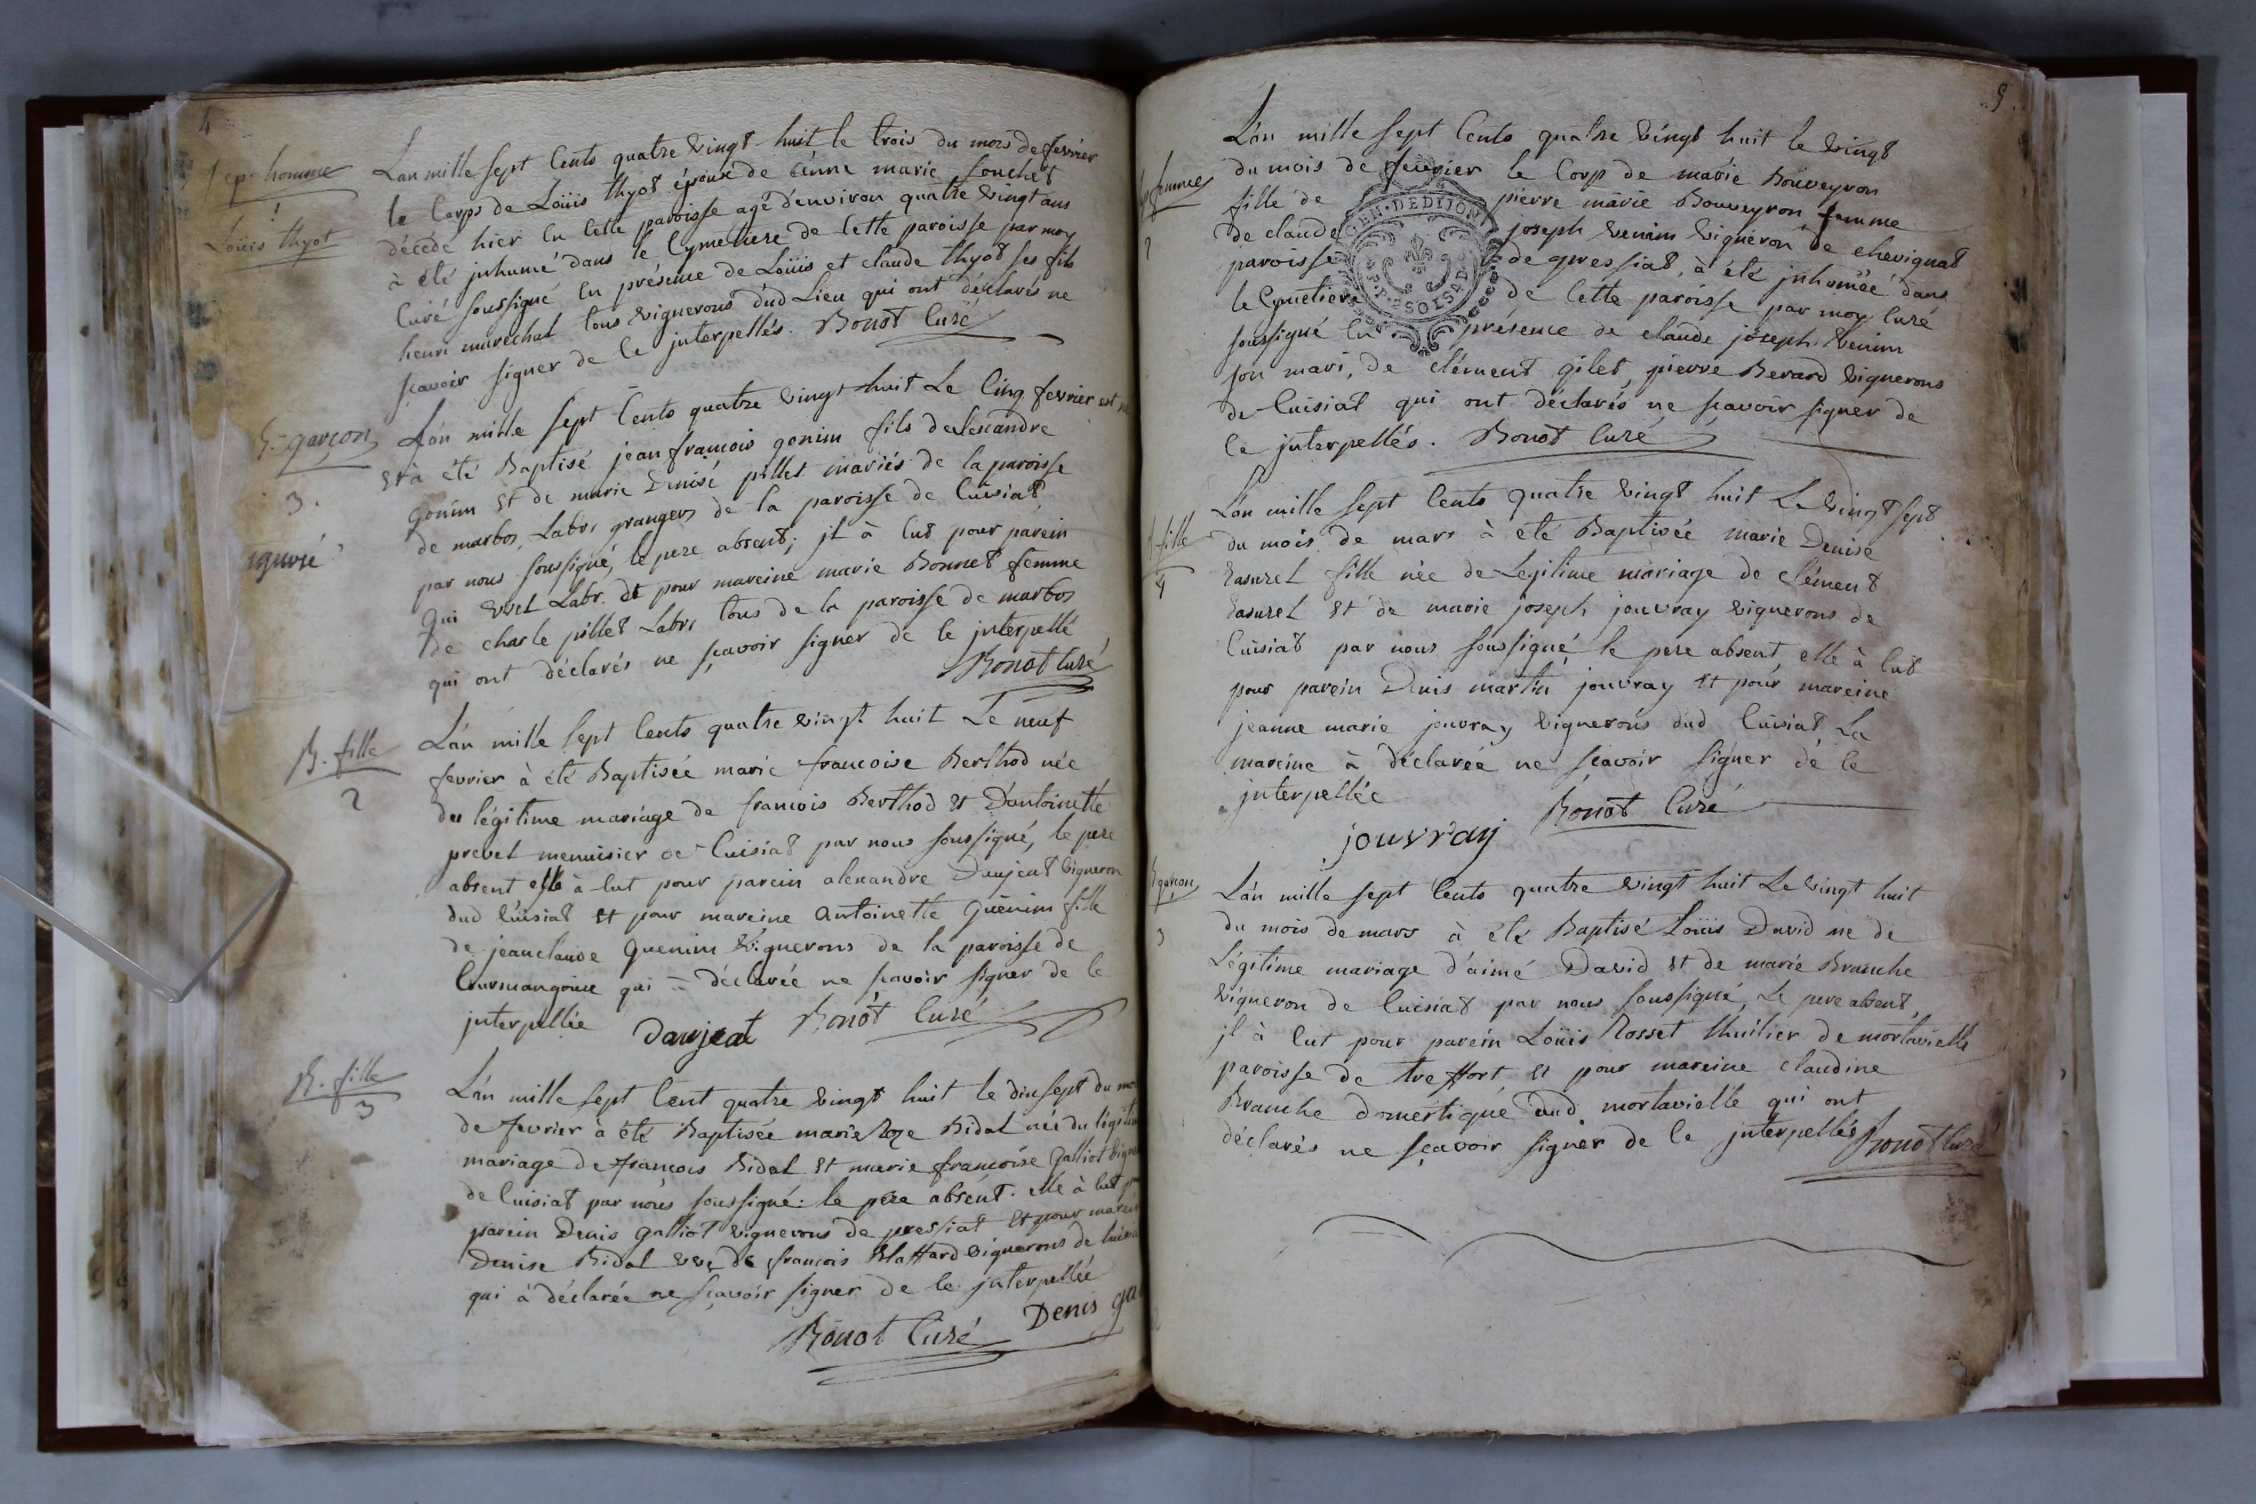 4
1 ep. homme
1
Loüis thyot
L'an mille sept Cents quatre vingt-huit le trois du mois de fevrier
le Corps de Loüis thyot époux de Anne marie souchet
décédé hier en Cette paroisse agé d'environ quatre vingt ans
à été jnhumé dans le Cymetiere de Cette paroisse par moy
Curé soussigné En présence de Loüis et claude thyot ses fils
henri marechal tous vignerons dud Lieu qui ont déclarés ne
scavoir signer de Ce jnterpellés. Bonot Curé
B. garçon
3.
L'an mille sept Cents quatre vingt huit Le Cinq fevrier est né
et à été Baptisé jean françois gonim fils de
gonim et de marie Denise pillet mariés de la paroisse
de marbos, Labr. grangers de la paroisse de Cuisiat
par nous soussigné, le pere absent; jl à Eut pour parein
qui Labr. et pour mareine marie Bonnet femme
de charle pillet Labr. tous de la paroisse de marbos
qui ont déclarés ne sçavoir signer de Ce jnterpellé
Bonot Curé
B. fille
2
L'an mille sept Cents quatre vingt huit Le neuf
fevrier à été Baptisée marie francoise Berthod née
du légitime mariage de francois Berthod et D'antoinette
prevel menuisier de Cuisiat par nous soussigné, le pere
absent elle à Eut pour parein alexandre Daujeat vigneron
dud Cuisiat et pour mareine Antoinette Guenim fille
de jeanclaude Guenim Vignerons de la paroisse de
Courmangoux qui a déclarée ne scavoir signer de Ce
jnterpellée Daujeat Bonot Curé
B. fille
3
L'an mille sept Cent quatre vingt huit le dix sept du mois
de fevrier à été Baptisée marie Roze Bidal née du légitime
mariage de françois Bidal et marie françoise Galliot
de Cuisiat par nous soussigné. le père absent. elle à Eut
parein Denis Galliot vignerons de pressiat et pour
Denise Bidal vve. de françois Blaffard vignerons de
qui à déclarée ne sçavoir signer de Ce jnterpellée
Bonot Curé Denis
5
femme
2
L'an mille sept Cents quatre vingt huit le vingt
du mois de fevrier le Corp de marie Bouveyron
fille de pierre marie Bouveyron femme
de claude joseph Venim vigneron de chevignat
paroisse de pressiat, à été jnhumée dans
le Cymetiere de Cette paroisse par moy Curé
soussigné En présence de claude joseph Venim
son mari, de clément gilet, pierre Berard vignerons
de Cuisiat qui ont déclarés ne scavoir signer de
Ce jnterpellés. Bonot Curé
GEN. DE DIJON
fille
4
L'an mille sept Cents quatre vingt huit Le vingt sept
du mois de mars à été Baptisée marie Denise
fille née de Legitime mariage de clément
et de marie joseph jouvray vignerons de
Cuisiat par nous soussigné le pere absent, elle à Eut
pour parein Denis martin jouvray et pour mareine
jeanne marie jouvray vignerons dud Cuisiat La
mareine à déclarée ne scavoir signer de Ce
jnterpellée Bonot Curé
jouvray
B garcon
3
L'an mille sept Cents quatre vingt huit Le vingt huit
du mois de mars à été Baptisé Loüis David né de
Légitime mariage d'aimé David et de marie Branche
vigneron de Cuisiat par nous soussigné, Le pere absent,
jl à Eut pour parein Loüis Rosset thuilier de mortavielle
paroisse de treffort et pour mareine claudine
Branche domestique dud mortavielle qui ont
déclarés ne sçavoir signer de Ce jnterpellés Bonot Curé